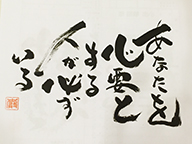 あなたを
心要と
する
人が必ず
いる